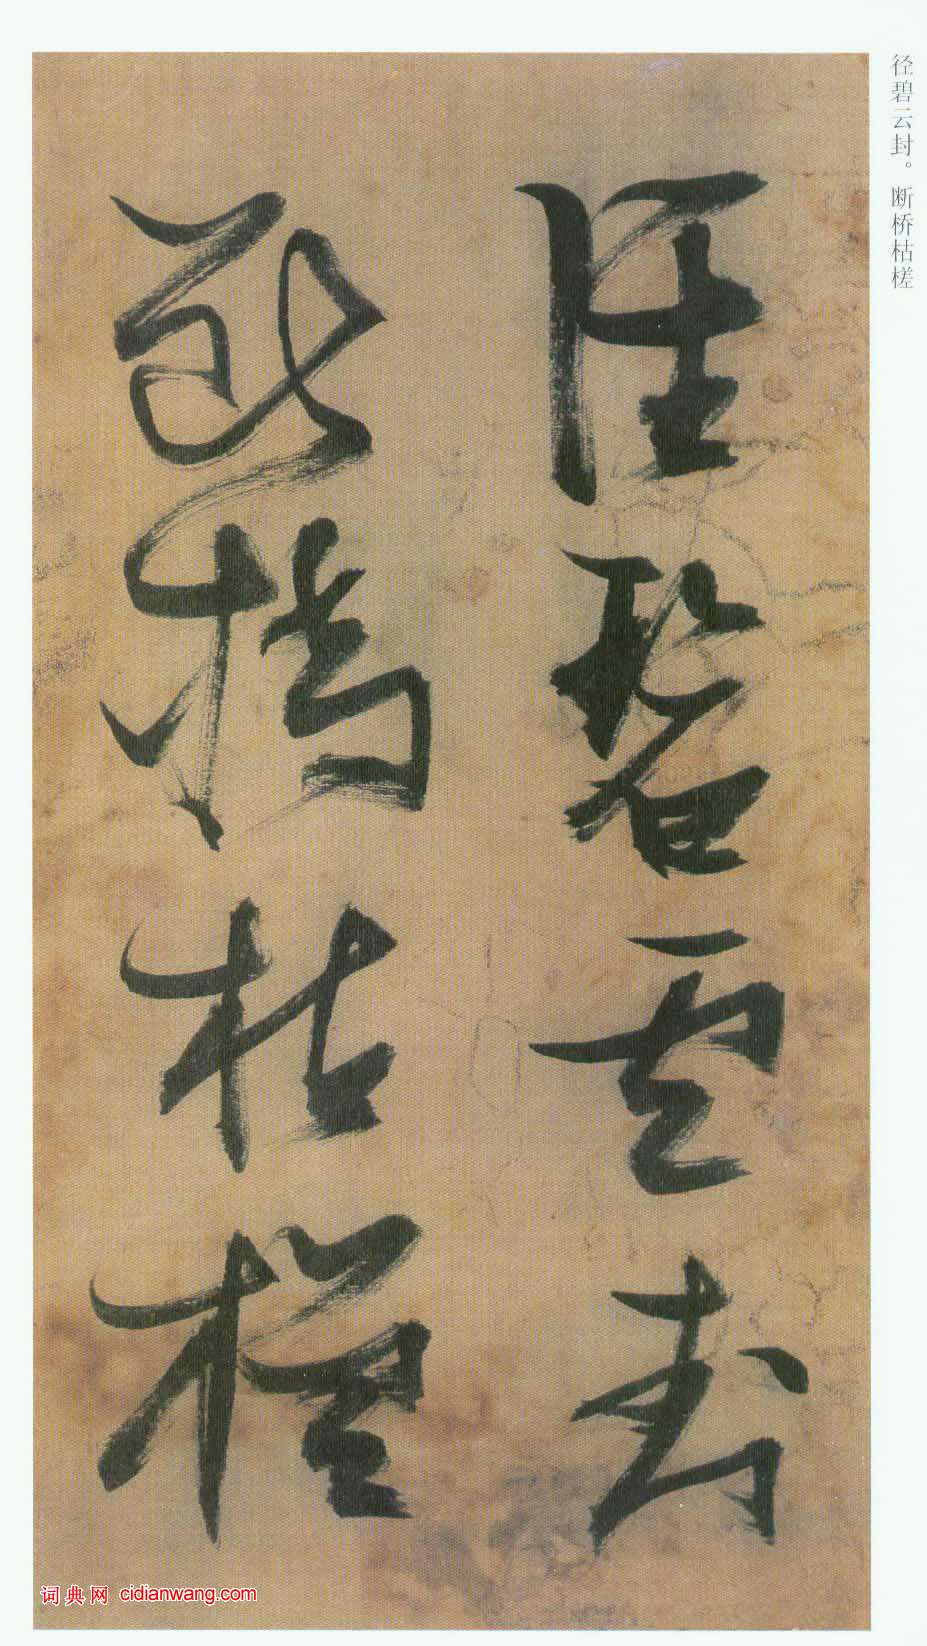 径碧云封。断桥枯槎
径碧云封
断桥枯槎
词典网 cidianwang.com